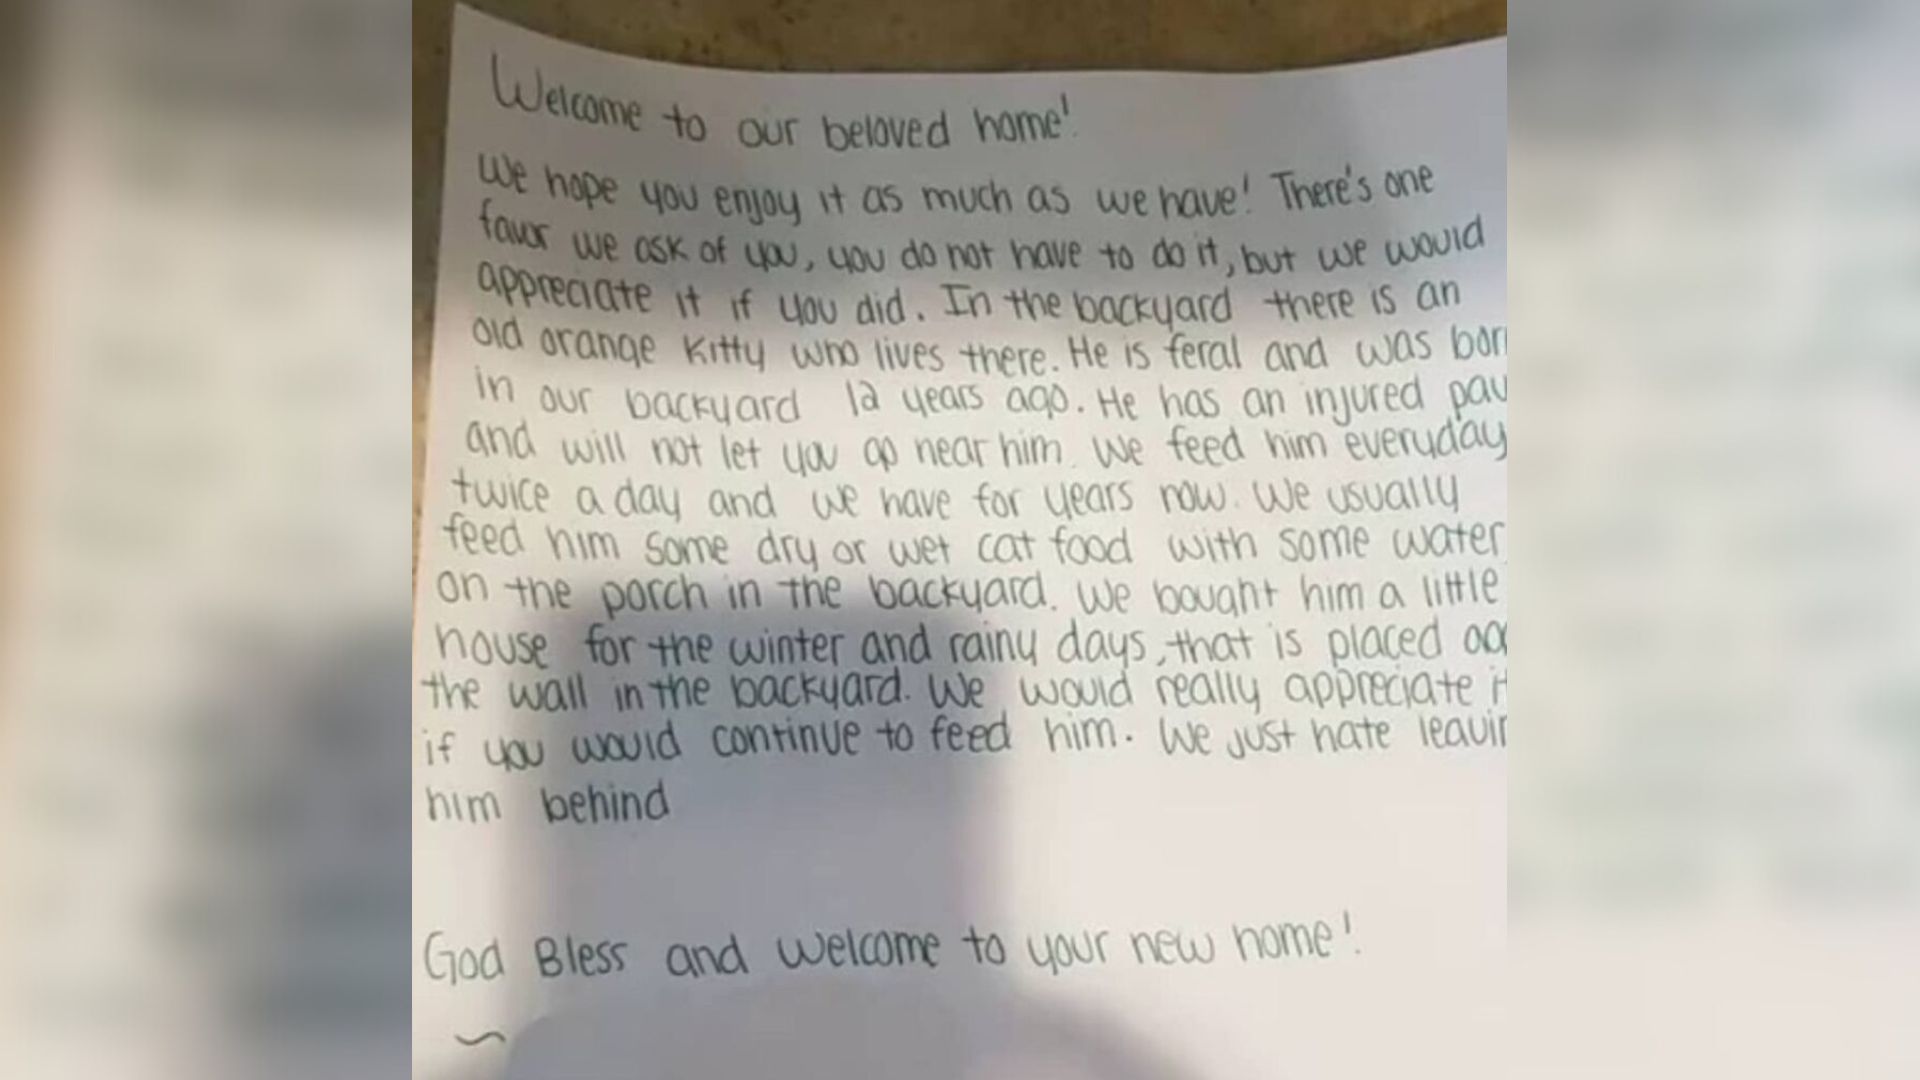 Welcome to our beloved home!
We hope you enjoy it as much as we have! There's one
favor we ask of you, you do not have to do it, but we would
appreciate it if you did. In the backyard there is an
old orange kitty who lives there. He is feral and was bor
in our backyard 12 years ago. He has an injured paw
and will not let you go near him. We feed him everyday
twice a day and we have for years now. We usually
feed him some dry or wet cat food with some water
on the porch in the backyard. We bought him a little
house for the winter and rainy days, that is placed
the wall in the backyard. We would really appreciate it
if you would continue to feed him. We just hate leavin
him behind
God Bless and welcome to your new home!